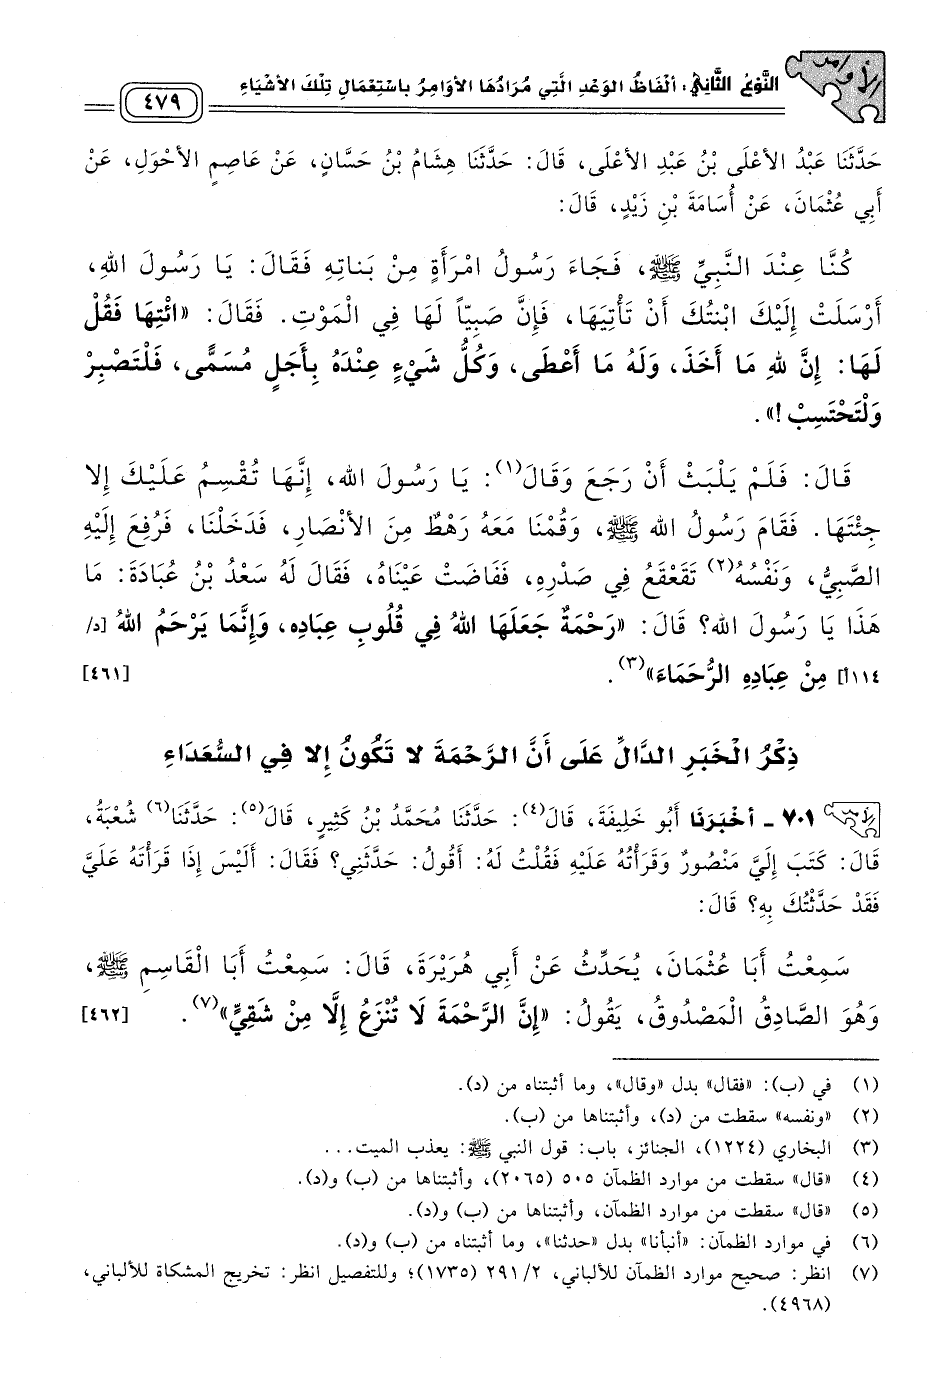 الأوامر
النَّوْعُ الثَّانِي: ألْفَاظُ الوَعْدِ الَّتِي مُرَادُهَا الأوَامِرُ بِاسْتِعْمَالِ تِلْكَ الأشْيَاءِ
٤٧٩
حَدَّثَنَا عَبْدُ الأعْلَى بْنُ عَبْدِ الأعْلَى، قَالَ: حَدَّثَنَا هِشَامُ بْنُ حَسَّانٍ، عَنْ عَاصِمٍ الأحْوَلِ، عَنْ
أَبِي عُثْمَانَ، عَنْ أُسَامَةَ بْنِ زَيْدٍ، قَالَ:
كُنَّا عِنْدَ النَّبِيِّ ﷺ، فَجَاءَ رَسُولُ امْرَأَةٍ مِنْ بَنَاتِهِ فَقَالَ: يَا رَسُولَ اللهِ،
أَرْسَلَتْ إِلَيْكَ ابْنَتُكَ أَنْ تَأْتِيَهَا، فَإِنَّ صَبِيّاً لَهَا فِي الْمَوْتِ. فَقَالَ: «ائْتِهَا فَقُلْ
لَهَا: إِنَّ لِلهِ مَا أَخَذَ، وَلَهُ مَا أَعْطَى، وَكُلُّ شَيْءٍ عِنْدَهُ بِأَجَلٍ مُسَمًّى، فَلْتَصْبِرْ
وَلْتَحْتَسِبْ!».
قَالَ: فَلَمْ يَلْبَثْ أَنْ رَجَعَ وَقَالَ(١): يَا رَسُولَ الله، إِنَّهَا تُقْسِمُ عَلَيْكَ إِلا
جِئْتَهَا. فَقَامَ رَسُولُ الله ﷺ، وَقُمْنَا مَعَهُ رَهْطٌ مِنَ الأَنْصَارِ، فَدَخَلْنَا، فَرُفِعَ إِلَيْهِ
الصَّبِيُّ، وَنَفْسُهُ(٢) تَقَعْقَعُ فِي صَدْرِهِ، فَفَاضَتْ عَيْنَاهُ، فَقَالَ لَهُ سَعْدُ بْنُ عُبَادَةَ: مَا
هَذَا يَا رَسُولَ الله؟ قَالَ: «رَحْمَةٌ جَعَلَهَا اللهُ فِي قُلُوبِ عِبَادِهِ، وَإِنَّمَا يَرْحَمُ اللهُ [د/
١١٤أ] مِنْ عِبَادِهِ الرُّحَمَاءَ»(٣). [٤٦١]
ذِكْرُ الْخَبَرِ الدَّالِّ عَلَى أَنَّ الرَّحْمَةَ لا تَكُونُ إِلا فِي السُّعَدَاءِ
الأوامر ٧٠١ - أخْبَرَنَا أَبُو خَلِيفَةَ، قَالَ(٤): حَدَّثَنَا مُحَمَّدُ بْنُ كَثِيرٍ، قَالَ(٥): حَدَّثَنَا(٦) شُعْبَةُ،
قَالَ: كَتَبَ إِلَيَّ مَنْصُورٌ وَقَرَأْتُهُ عَلَيْهِ فَقُلْتُ لَهُ: أَقُولُ: حَدَّثَنِي؟ فَقَالَ: أَلَيْسَ إِذَا قَرَأْتَهُ عَلَيَّ
فَقَدْ حَدَّثْتُكَ بِهِ؟ قَالَ:
سَمِعْتُ أَبَا عُثْمَانَ، يُحَدِّثُ عَنْ أَبِي هُرَيْرَةَ، قَالَ: سَمِعْتُ أَبَا الْقَاسِمِ ﷺ،
وَهُوَ الصَّادِقُ الْمَصْدُوقُ، يَقُولُ: «إِنَّ الرَّحْمَةَ لَا تُنْزَعُ إِلَّا مِنْ شَقِيٍّ»(٧). [٤٦٢]
(١) في (ب): «فقال» بدل «وقال»، وما أثبتناه من (د).
(٢) «ونفسه» سقطت من (د)، وأثبتناها من (ب).
(٣) البخاري (١٢٢٤)، الجنائز، باب: قول النبي ﷺ: يعذب الميت...
(٤) «قال» سقطت من موارد الظمآن ٥٠٥ (٢٠٦٥)، وأثبتناها من (ب) و(د).
(٥) «قال» سقطت من موارد الظمآن، وأثبتناها من (ب) و(د).
(٦) في موارد الظمآن: «أنبأنا» بدل «حدثنا»، وما أثبتناه من (ب) و(د).
(٧) انظر: صحيح موارد الظمآن للألباني، ٢/ ٢٩١ (١٧٣٥)؛ وللتفصيل انظر: تخريج المشكاة للألباني،
(٤٩٦٨).